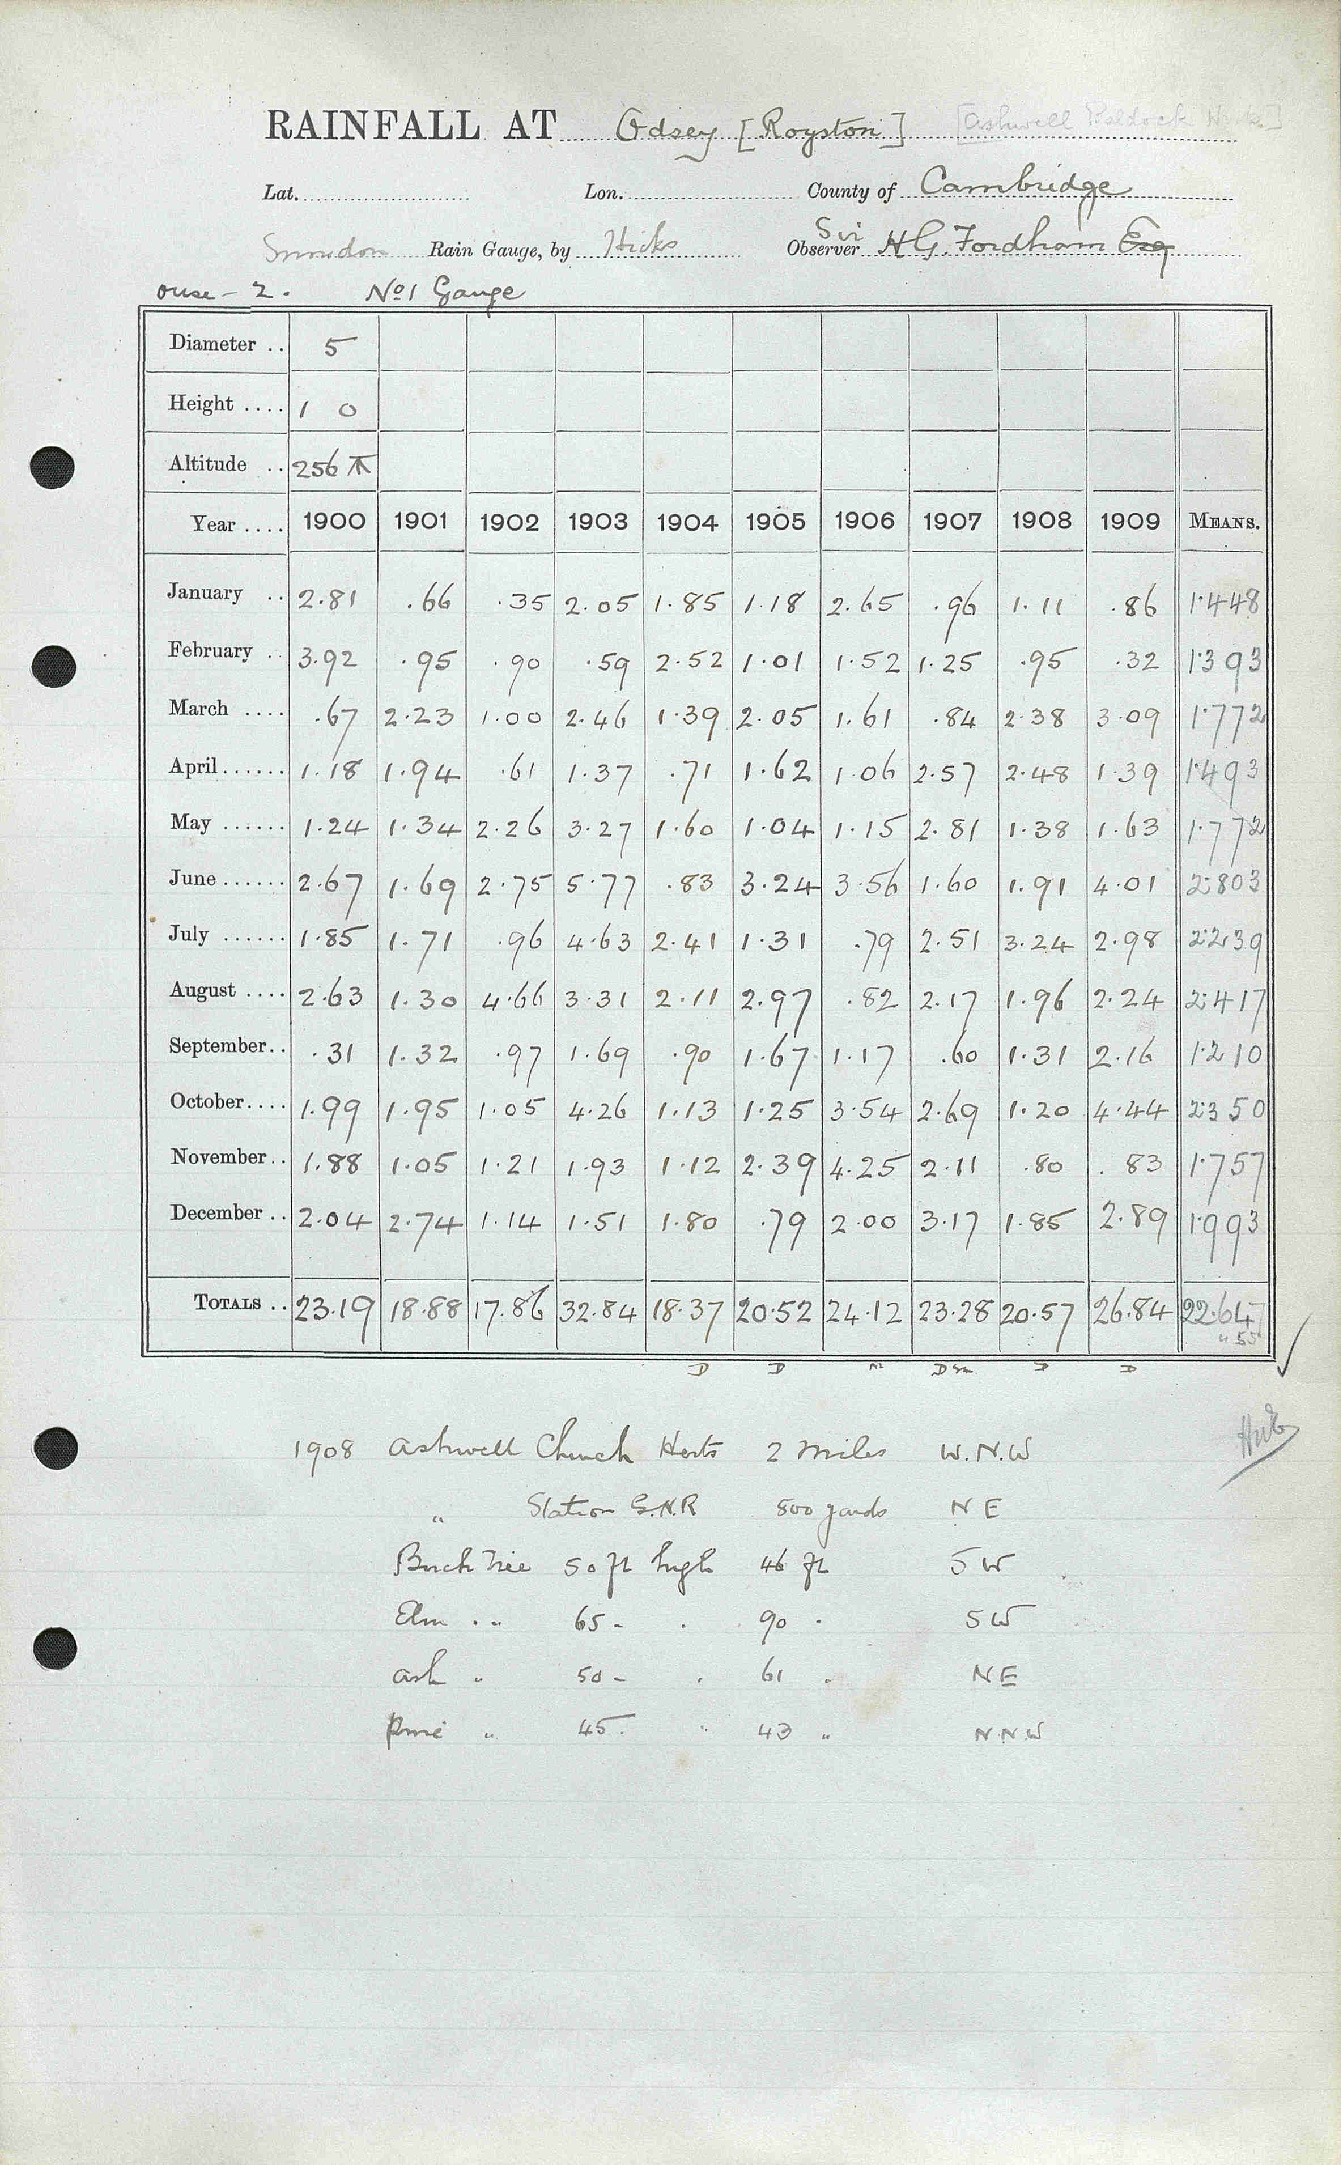 RAINFALL AT Odsey [Royston] [Ashwell Baldock Herts]
Lat. Lon. County of Cambridge
Snowdon Rain Gauge, by Hicks Observer Sir H G. Fordham Esq
Ouse - 2. No 1 Gauge
Diameter .. 5
Height .... 1 0
Altitude .. 256
Year .... 1900 1901 1902 1903 1904 1905 1906 1907 1908 1909 MEANS.
January .. 2.81 .66 .35 2.05 1.85 1.18 2.65 .96 1.11 .86 1.448
February .. 3.92 .95 .90 .59 2.52 1.01 1.52 1.25 .95 .32 1.393
March .... .67 2.23 1.00 2.46 1.39 2.05 1.61 .84 2.38 3.09 1.772
April...... 1.18 1.94 .61 1.37 .71 1.62 1.06 2.57 2.48 1.39 1.493
May ...... 1.24 1.34 2.26 3.27 1.60 1.04 1.15 2.81 1.38 1.63 1.772
June...... 2.67 1.69 2.75 5.77 .83 3.24 3.56 1.60 1.91 4.01 2.803
July ...... 1.85 1.71 .96 4.63 2.41 1.31 .79 2.51 3.24 2.98 2.239
August .... 2.63 1.30 4.66 3.31 2.11 2.97 .82 2.17 1.96 2.24 2.417
September.. .31 1.32 .97 1.69 .90 1.67 1.17 .60 1.31 2.16 1.210
October.... 1.99 1.95 1.05 4.26 1.13 1.25 3.54 2.69 1.20 4.44 2.350
November.. 1.88 1.05 1.21 1.93 1.12 2.39 4.25 2.11 .80 .83 1.757
December .. 2.04 2.74 1.14 1.51 1.80 .79 2.00 3.17 1.85 2.89 1.993
TOTALS .. 23.19 18.88 17.86 32.84 18.37 20.52 24.12 23.28 20.57 26.84 22.647
" 55
D D D D D
1908 Ashwell Church Herts 2 miles W.N.W
" Station G.N.R 800 yards N E
Birch Tree 50 ft high 46 ft S W
Elm " 65 " " 90 " S W
Ash " 50 " " 61 " N E
Pine " 45 " " 43 " N.N.W